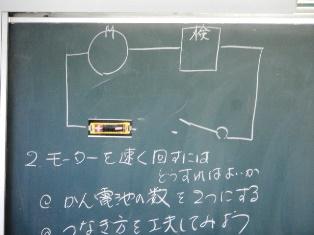 M
検
2.モーターを速く回すには
どうすればよいか
@ かん電池の数を2つにする
@ つなぎ方を工夫してみよう